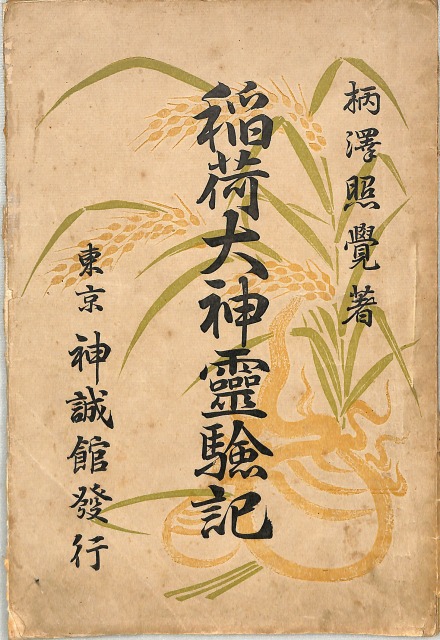 柄澤照覺著
稲荷大神靈驗記
東京 神誠館發行